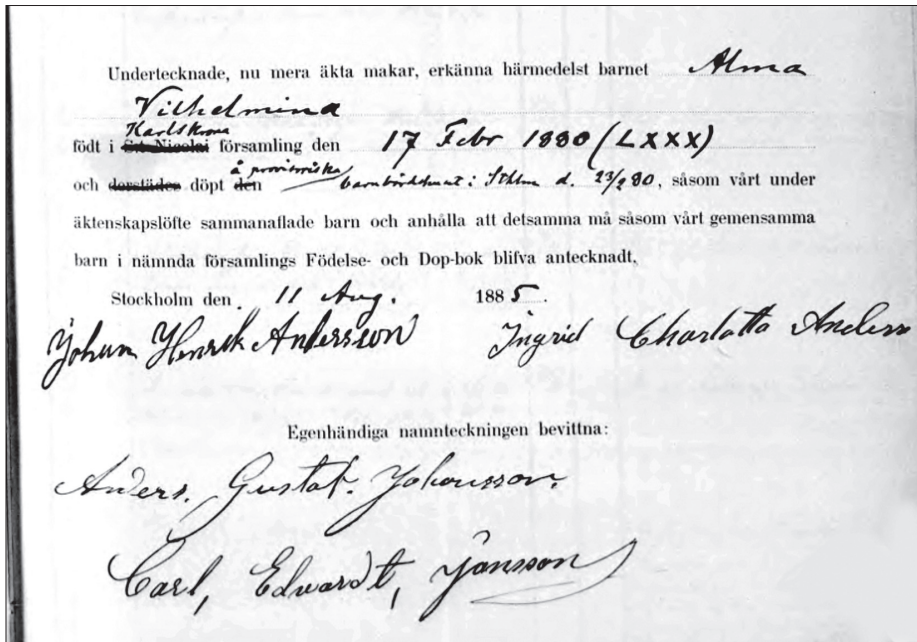 Undertecknade, nu mera äkta makar, erkänna härmedelst barnet Alma
Vilhelmina
Karlskrona
född i S:t Nicolai församling den 17 Febr 1880 (LXXX)
å provisoriska
och derstädes döpt den barnbördshuset i Sthlm d. 23/2 80, såsom vårt under
äktenskapslöfte sammanaflade barn och anhålla att detsamma må såsom vårt gemensamma
barn i nämnda församlings Födelse- och Dop-bok blifva antecknadt.
Stockholm den 11 Aug. 1885.
Johan Henrik Andersson Ingrid Charlotta Anderss
Egenhändiga namnteckningen bevittna:
Anders. Gustaf. Johansson.
Carl, Edvardt, Jansson